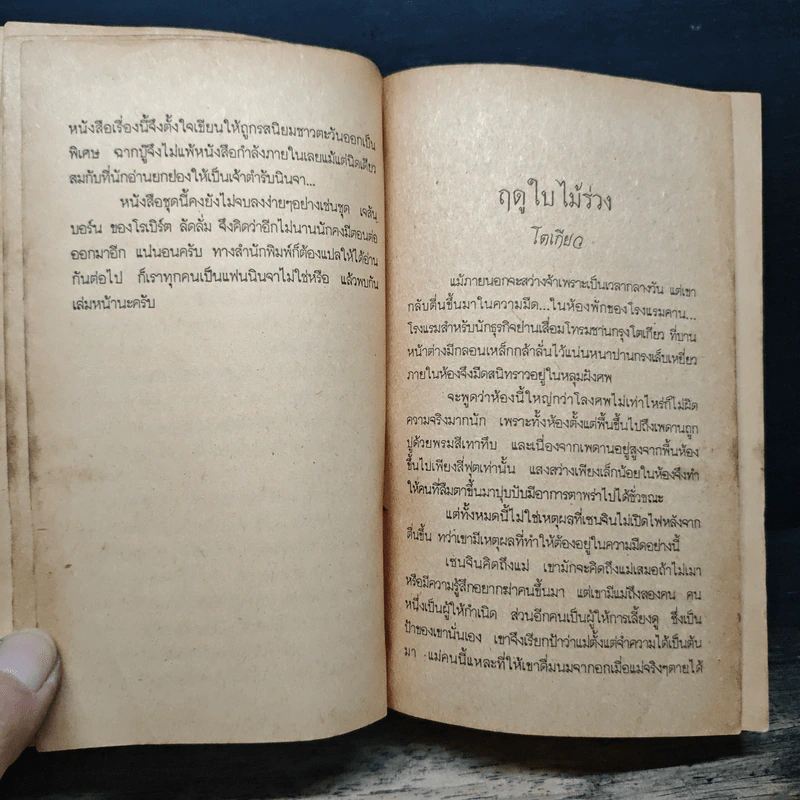 หนังสือเรื่องนี้จึงตั้งใจเขียนให้ถูกรสนิยมชาวตะวันออกเป็น
พิเศษ ฉากบู๊จึงไม่แพ้หนังสือกำลังภายในเลยแม้แต่นิดเดียว
สมกับที่นักอ่านยกย่องให้เป็นเจ้าตำรับนินจา...
หนังสือชุดนี้คงยังไม่จบลงง่ายๆอย่างเช่นชุด เจสัน
บอร์น ของโรเบิร์ต ลัดลั่ม จึงคิดว่าอีกไม่นานนักคงมีตอนต่อ
ออกมาอีก แน่นอนครับ ทางสำนักพิมพ์ก็ต้องแปลให้ได้อ่าน
กันต่อไป ก็เราทุกคนเป็นแฟนนินจาไม่ใช่หรือ แล้วพบกัน
เล่มหน้านะครับ
ฤดูใบไม้ร่วง
โตเกียว
แม้ภายนอกจะสว่างจ้าเพราะเป็นเวลากลางวัน แต่เขา
กลับตื่นขึ้นมาในความมืด...ในห้องพักของโรงแรมคาน...
โรงแรมสำหรับนักธุรกิจย่านเสื่อมโทรมชานกรุงโตเกียว ที่บาน
หน้าต่างมีกลอนเหล็กกล้าลั่นไว้แน่นหนาปานกรงเล็บเหยี่ยว
ภายในห้องจึงมืดสนิทราวอยู่ในหลุมฝังศพ
จะพูดว่าห้องนี้ใหญ่กว่าโลงศพไม่เท่าไหร่ก็ไม่ผิด
ความจริงมากนัก เพราะทั้งห้องตั้งแต่พื้นขึ้นไปถึงเพดานถูก
ปูด้วยพรมสีเทาทึบ และเนื่องจากเพดานอยู่สูงจากพื้นห้อง
ขึ้นไปเพียงสี่ฟุตเท่านั้น แสงสว่างเพียงเล็กน้อยในห้องจึงทำ
ให้คนที่ลืมตาขึ้นมาปุบปับมีอาการตาพร่าไปได้ชั่วขณะ
แต่ทั้งหมดนี้ไม่ใช่เหตุผลที่เซนจินไม่เปิดไฟหลังจาก
ตื่นขึ้น ทว่าเขามีเหตุผลที่ทำให้ต้องอยู่ในความมืดอย่างนี้
เซนจินคิดถึงแม่ เขามักจะคิดถึงแม่เสมอถ้าไม่เมา
หรือมีความรู้สึกอยากฆ่าคนขึ้นมา แต่เขามีแม่ถึงสองคน คน
หนึ่งเป็นผู้ให้กำเนิด ส่วนอีกคนเป็นผู้ให้การเลี้ยงดู ซึ่งเป็น
ป้าของเขานั่นเอง เขาจึงเรียกป้าว่าแม่ตั้งแต่จำความได้เป็นต้น
มา แม่คนนี้แหละที่ให้เขาดื่มนมจากอกเมื่อแม่จริงๆตายได้